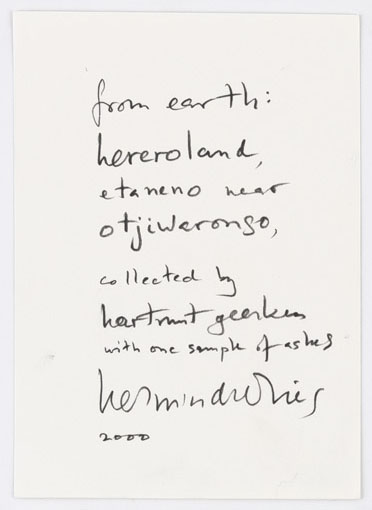 from earth:
hereroland,
etaneno near
otjiwarongo,
collected by
hartmut geerken
with one sample of ashes
herman de vries
2000